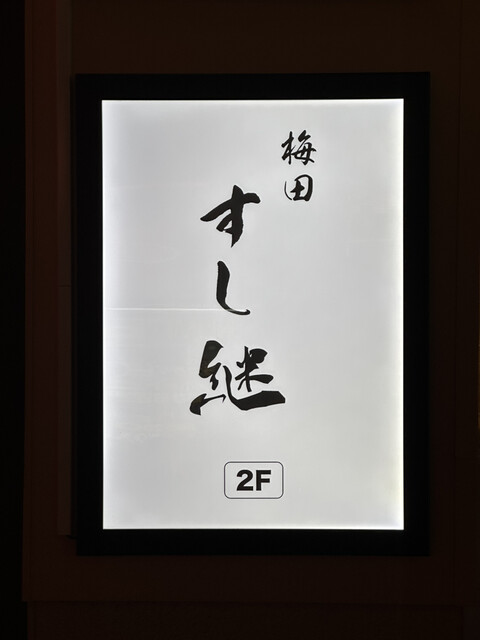 梅田
すし継
2F